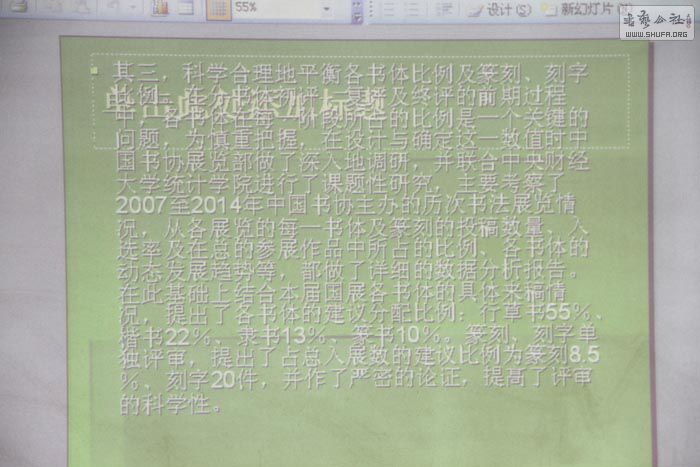 55%
设计(S)
新幻灯片(N)
书艺公社
WWW.SHUFA.ORG
单击此处添加标题
其三，科学合理地平衡各书体比例及篆刻、刻字
比例。在分书体初评、复评及终评的前期过程
中，各书体在每一阶段所占的比例是一个关键的
问题，为慎重把握，在设计与确定这一数值时中
国书协展览部做了深入地调研，并联合中央财经
大学统计学院进行了课题性研究，主要考察了
2007至2014年中国书协主办的历次书法展览情
况，从各展览的每一书体及篆刻的投稿数量、入
选率及在总的参展作品中所占的比例、各书体的
动态发展趋势等，都做了详细的数据分析报告。
在此基础上结合本届国展各书体的具体来稿情
况，提出了各书体的建议分配比例：行草书55%、
楷书22%、隶书13%、篆书10%。篆刻、刻字单
独评审，提出了占总入展数的建议比例为篆刻8.5
%、刻字20件，并作了严密的论证，提高了评审
的科学性。